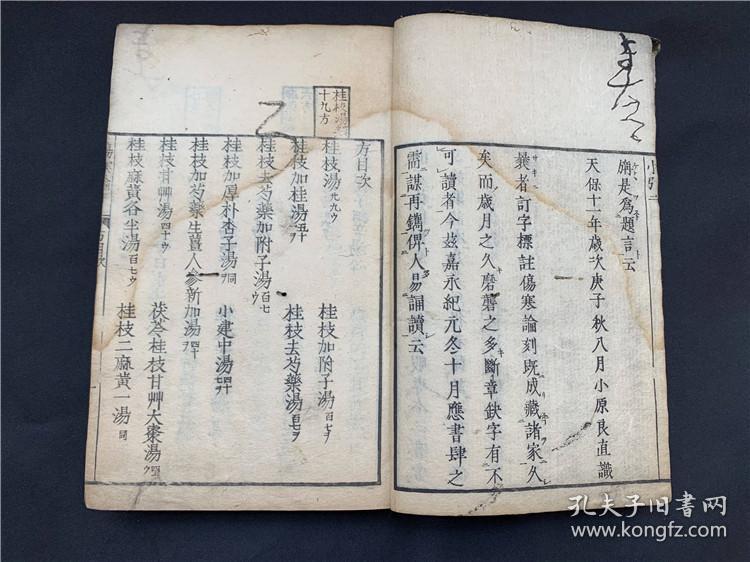 小引二
廟是爲題言云
天保十一年歲次庚子秋八月小原良直識
曩者訂字標註傷寒論刻既成藏諸家久
矣而歲月之久磨磬之多斷章缺字有不
可讀者今玆嘉永紀元冬十月應書肆之
需謀再鐫俾人易誦讀云
桂枝湯
十九方
方目次
桂枝湯 九九ウ
桂枝加附子湯 百七ヲ
桂枝加桂湯
桂枝去芍藥湯 百七ヲ
桂枝去芍藥加附子湯 百七ウ
桂枝加厚朴杏子湯
小建中湯
桂枝加芍藥生薑人參新加湯
桂枝甘艸湯
茯苓桂枝甘艸大棗湯
桂枝麻黃各半湯 百七ウ
桂枝二麻黃一湯 同
孔夫子旧书网
www.kongfz.com